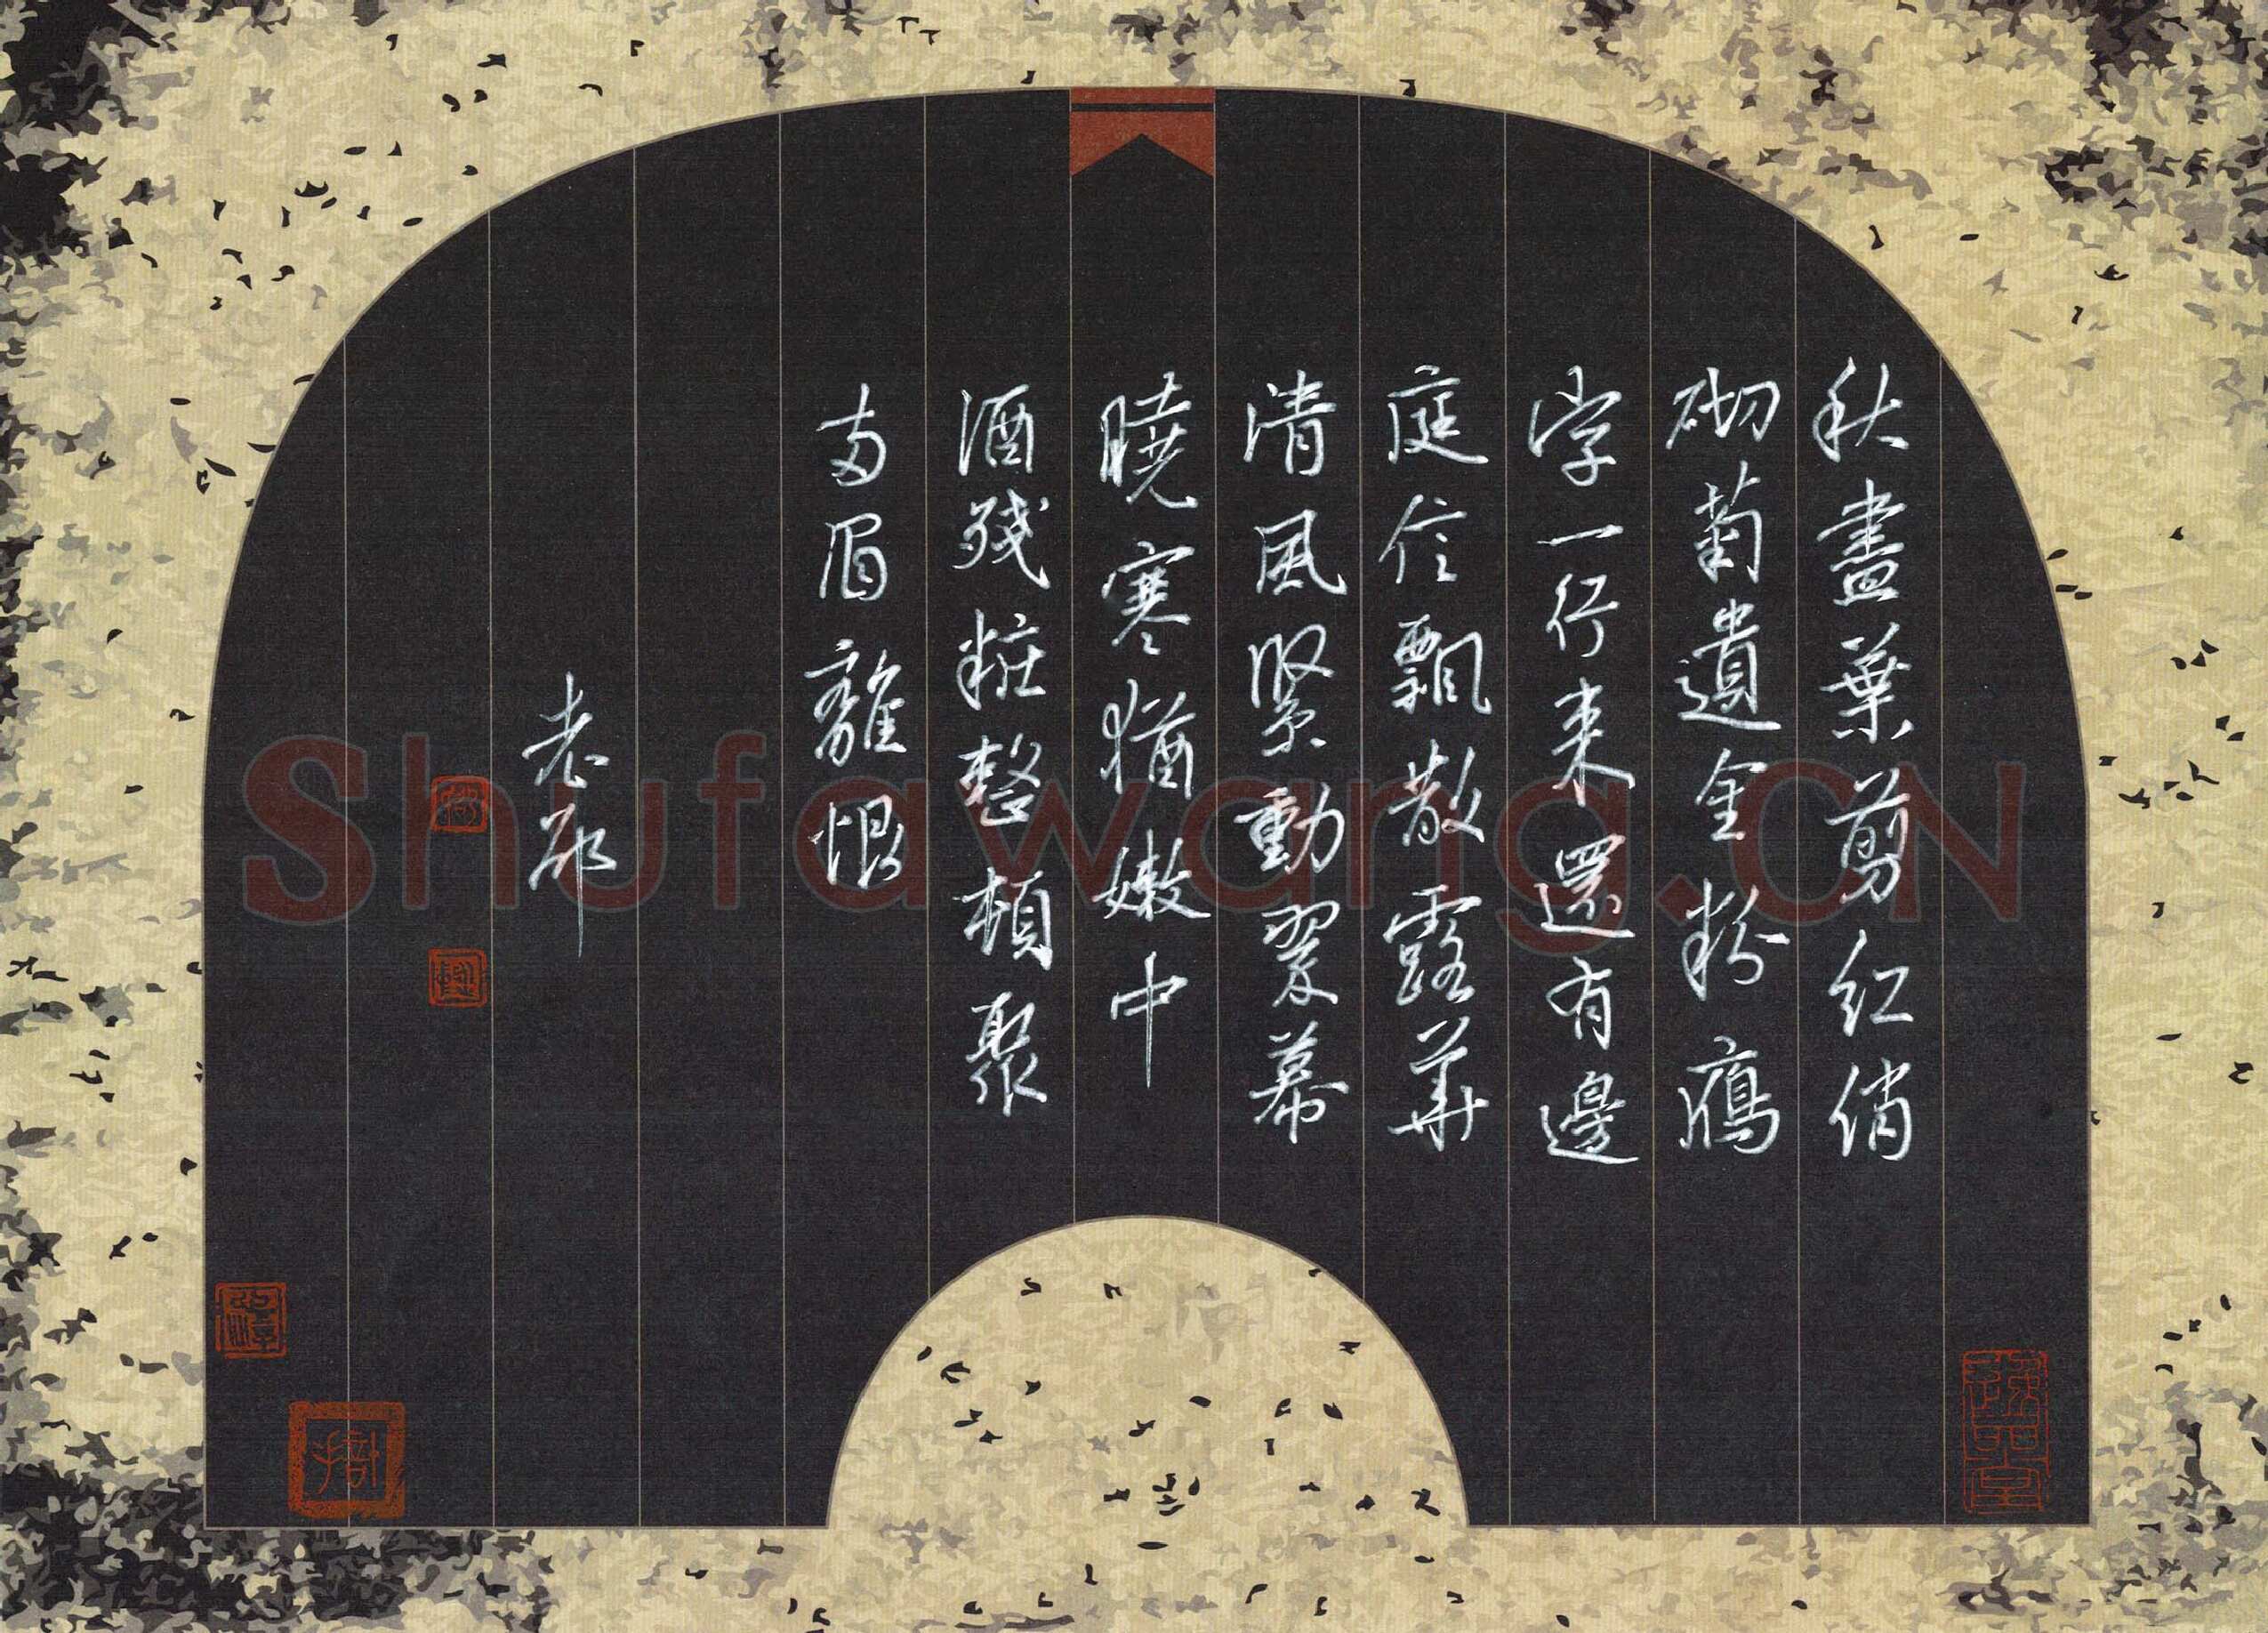 秋盡葉剪紅綃
砌菊遺金粉鴈
字一行来還有邊
庭信飄散露華
清風緊動翠幕
曉寒猶嫩中
酒殘粧整頓聚
兩眉離恨
老
Shufawang.CN